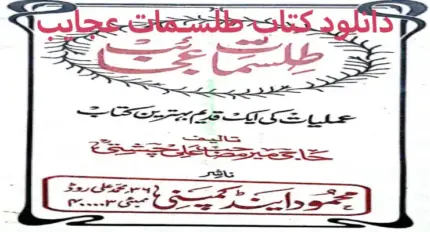 دانلود کتاب طلسمات عجایب
طلسمات عجائب
عملیات کی ایک قدیم بہترین کتاب
تالیف
حاجی میر
چشتی
ناشر
محمود اینڈ کمپنی
۳۶ محمد علی روڈ
ممبئی ۴۰۰۰۰۳